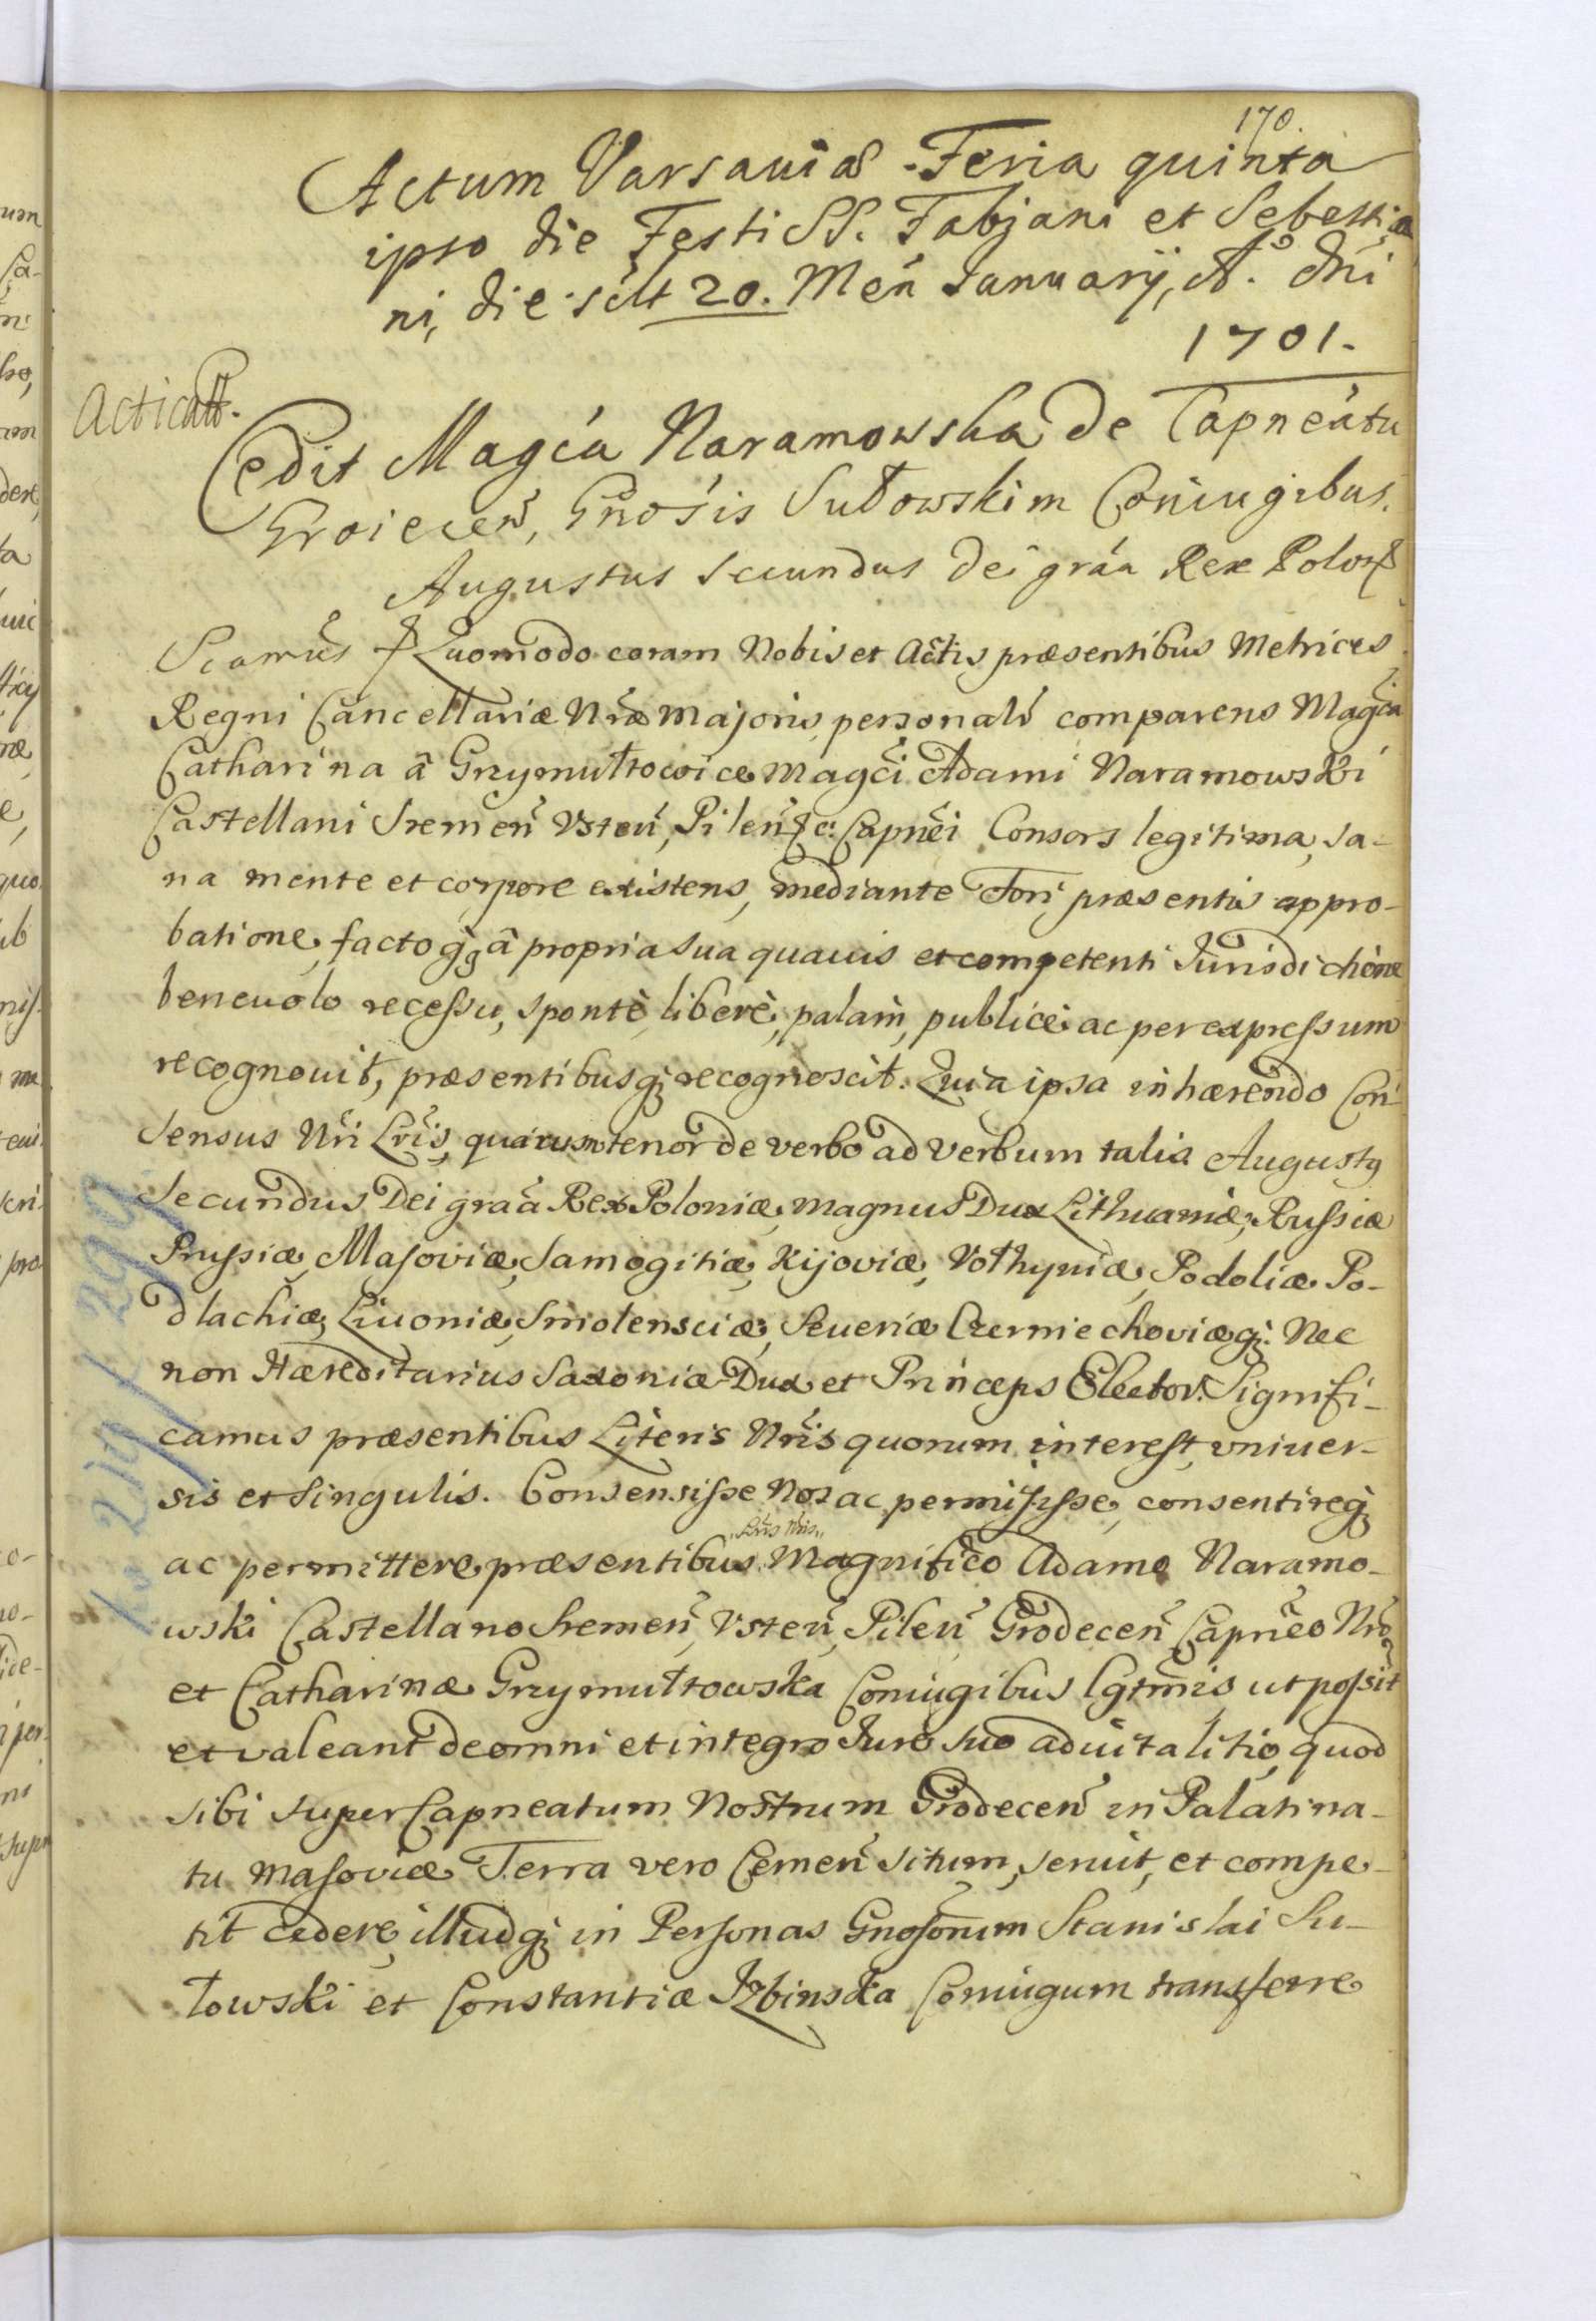 170.
Actum Varsaviæ Feria quinta
ipso die Festi SS. Fabjani et Sebestia
ni, die sclt 20. Men̄ January, Aº. Dni
1701.
Acticatt.
Cedit Magca Naramowska de Capneatu
Groiecen̄, Gnosis Sułowskim Coniugibus.
Augustus secundus Dei gráa Rex Polon
Significamus Quomodo coram Nobis et Actis præsentibus Metrices
Regni Cancellariæ Nræ Majoris, personalr comparens Magca
Catharina â Grzymułtowice Magci Adami Naramowski
Castellani Sremen̄ Usten̄, Pilen̄ &c: Capnei Consors legitima, sa-
na mente et corpore existens, mediante Fori præsentis appro-
batione, factoq; â propria sua quavis et competenti Jurisdictione
benevolo recessu, spontè, liberè, palàm, publicè ac per expressum
recognovit, præsentibusq; recognoscit. Quia ipsa inhærendo Con-
sensus Nri Lris, quarum tenor de verbo ad verbum talis Augustq
Secundus Dei graa Rex Poloniæ, magnus Dux Lithuaniæ, Russiæ
Prussiæ, Masoviæ, Samogitiæ, Kijoviæ, Vołhyniæ, Podoliæ Po-
dlachiæ, Livoniæ, Smolensciæ, Severiæ Czerniechoviæq; Nec
non Hæreditarius Saxoniæ Dux et Princeps Elector. Signifi-
camus præsentibus Literis Nris quorum interest, univer-
sis et singulis. Consensisse Nos ac permisisse, consentireq;
Lris Nris
ac permittere præsentibus Magnifico Adamo Naramo-
wski Castellano Sremen̄, Usten̄, Pilen̄ Grodecen̄ Capneo Nro
et Catharinæ Grzymułtowska Coniugibus lgtmis ut possit
et valeant de omni et integro Jure suo advitalitio, quod
sibi super Capneatum Nostrum Grodecen̄ in Palatina-
tu Masoviæ Terra vero Cernen̄ situm, servit, et compe-
tit cedere, illudq; in Personas Gnosorum Stanislai Su-
łowski et Constantiæ Izbinska Coniugum transferre